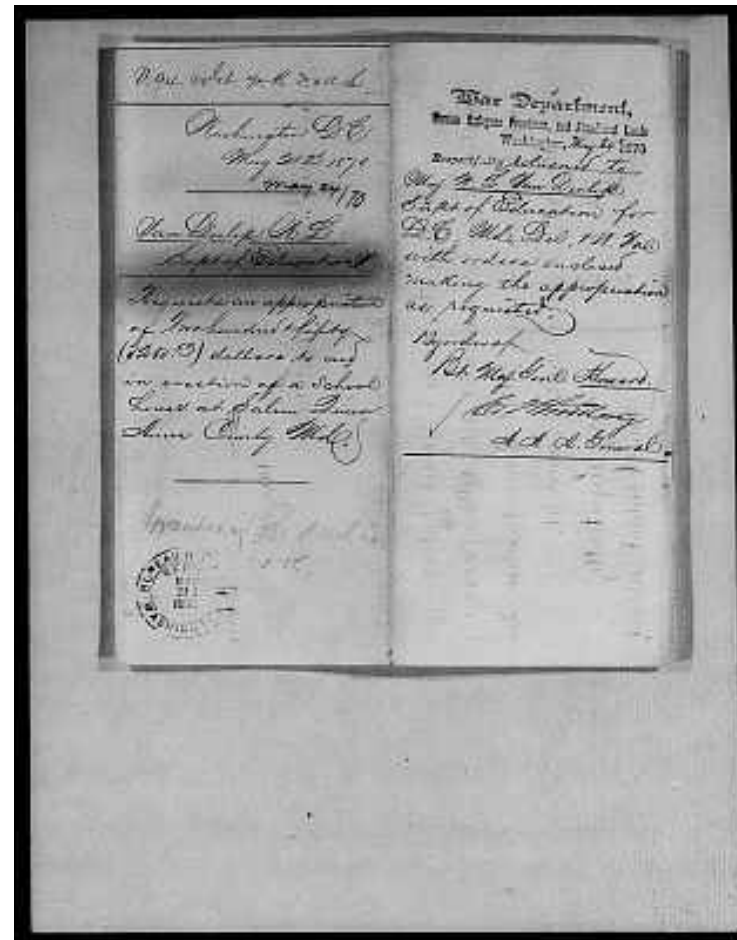 Washington D.C.
May 21st 1870
May 24/70
Van Derlip W. L.
Supt of Education
Requests an appropriation
of Two hundred & fifty
dollars to aid
in erection of a School
house at Salem Queen
Anne County Md.
War Department,
Bureau Refugees Freedmen, and Abandoned Lands
Washington, May 24 1870
Respectfully returned to
Maj W. L. Van Derlip
Supt of Education for
D.C. Md. Del. W. Va
with orders enclosed
making the appropriation
as requested.
By order of
Bt. Maj Genl Howard.
A. A. A. General.